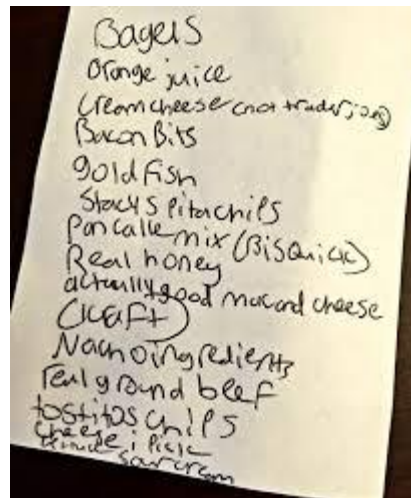 Bagels
Orange juice
Creamcheese (not trader joes)
Bacon Bits
gold Fish
Stacy s Pita chips
Pancake mix (Bisquick)
Real honey
actually good mac and cheese
(Kraft)
Nacho ingredients
real ground beef
tostitos chips
cheese i pick
sour cream